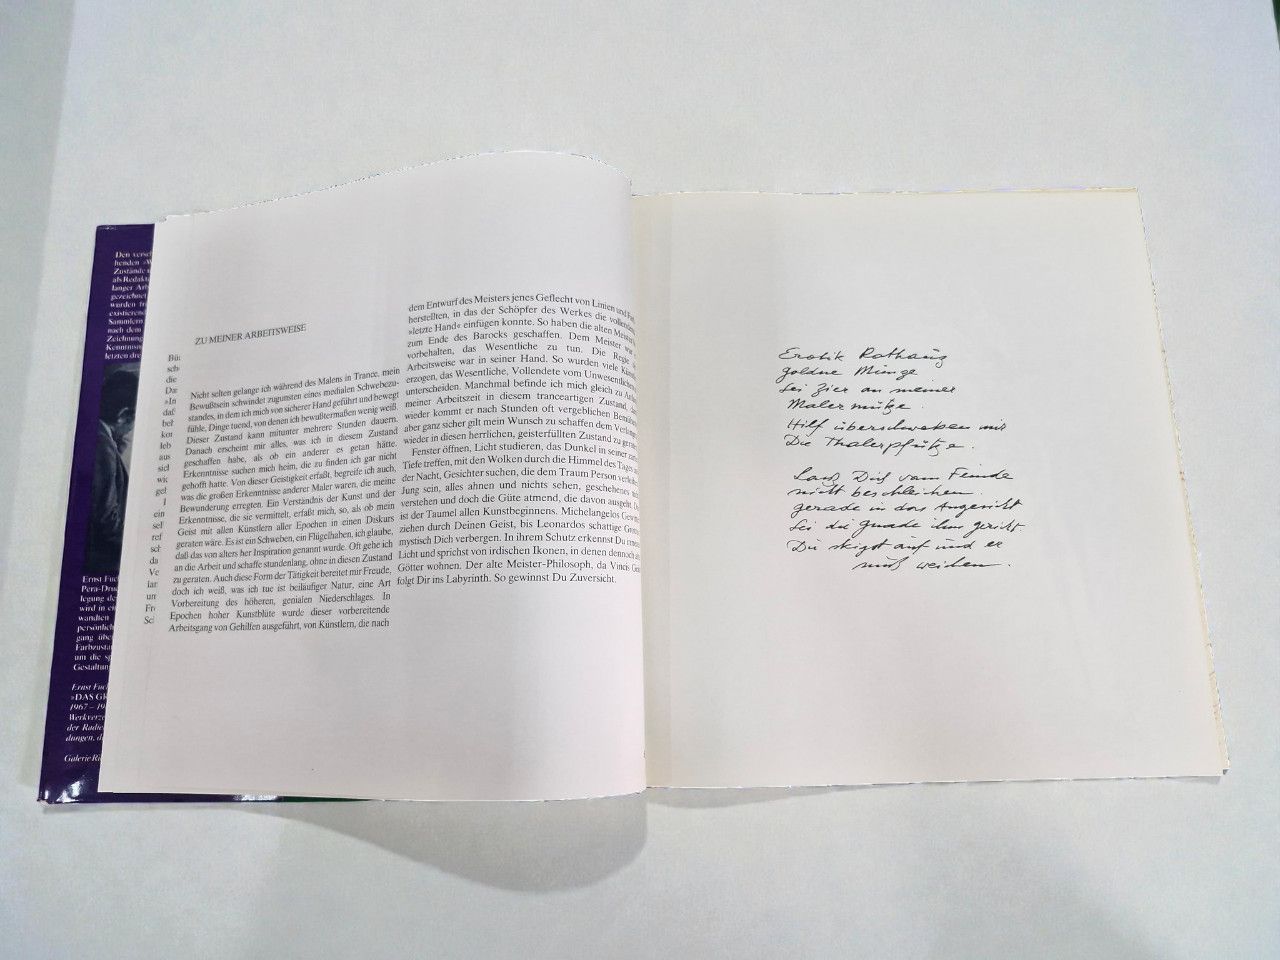 Den versch
henden »W
Zustände u
als Redakt
langer Arb
gezeichnet
wurden fr
existieren
Sammlern
nach dem
Zeichnung
Kenntniss
letzten dre
Ernst Fuc
Pera-Druc
legung de
wird in ei
wandlen
persönlich
gang übe
Farbzusta
um die sp
Gestaltun
Ernst Fuch
»DAS GR
1967 – 19
Werkverze
der Radie
dungen, d
Galerie Ri
ZU MEINER ARBEITSWEISE
Nicht selten gelange ich während des Malens in Trance, mein
Bewußtsein schwindet zugunsten eines medialen Schwebezu-
standes, in dem ich mich von sicherer Hand geführt und bewegt
fühle, Dinge tuend, von denen ich bewußtermaßen wenig weiß.
Dieser Zustand kann mitunter mehrere Stunden dauern.
Danach erscheint mir alles, was ich in diesem Zustand
geschaffen habe, als ob ein anderer es getan hätte.
Erkenntnisse suchen mich heim, die zu finden ich gar nicht
gehofft hatte. Von dieser Geistigkeit erfaßt, begreife ich auch,
was die großen Erkenntnisse anderer Maler waren, die meine
Bewunderung erregten. Ein Verständnis der Kunst und der
Erkenntnisse, die sie vermittelt, erfaßt mich, so, als ob mein
Geist mit allen Künstlern aller Epochen in einen Diskurs
geraten wäre. Es ist ein Schweben, ein Flügelhaben, ich glaube,
daß das von alters her Inspiration genannt wurde. Oft gehe ich
an die Arbeit und schaffe stundenlang, ohne in diesen Zustand
zu geraten. Auch diese Form der Tätigkeit bereitet mir Freude,
doch ich weiß, was ich tue ist beiläufiger Natur, eine Art
Vorbereitung des höheren, genialen Niederschlages. In
Epochen hoher Kunstblüte wurde dieser vorbereitende
Arbeitsgang von Gehilfen ausgeführt, von Künstlern, die nach
dem Entwurf des Meisters jenes Geflecht von Linien und
herstellten, in das der Schöpfer des Werkes die vollendende
»letzte Hand« einfügen konnte. So haben die alten Meister
zum Ende des Barocks geschaffen. Dem Meister war
vorbehalten, das Wesentliche zu tun. Die Regie
Arbeitsweise war in seiner Hand. So wurden viele
erzogen, das Wesentliche, Vollendete vom Unwesentlichen
unterscheiden. Manchmal befinde ich mich gleich zu
meiner Arbeitszeit in diesem tranceartigen Zustand,
wieder kommt er nach Stunden oft vergeblichen
aber ganz sicher gilt mein Wunsch zu schaffen dem
wieder in diesen herrlichen, geisterfüllten Zustand zu
Fenster öffnen, Licht studieren, das Dunkel in seiner
Tiefe treffen, mit den Wolken durch die Himmel des Tages
der Nacht, Gesichter suchen, die dem Traum Person
Jung sein, alles ahnen und nichts sehen, geschehenes
verstehen und doch die Güte atmend, die davon ausgeht.
ist der Taumel allen Kunstbeginnens. Michelangelos
ziehen durch Deinen Geist, bis Leonardos schattige
mystisch Dich verbergen. In ihrem Schutz erkennst Du
Licht und sprichst von irdischen Ikonen, in denen dennoch
Götter wohnen. Der alte Meister-Philosoph, da Vincis
folgt Dir ins Labyrinth. So gewinnst Du Zuversicht.
Erotik Rathaus
goldne Münze
sei Zier an meiner
Malermütze.
Hilf überschweben mir
Die Thalerpfütze.
Lass Dich vom Feinde
nicht beschleichen.
gerade in das Angesicht
sei die gnade ihm gericht
Du steigst auf und er
muß weichen.